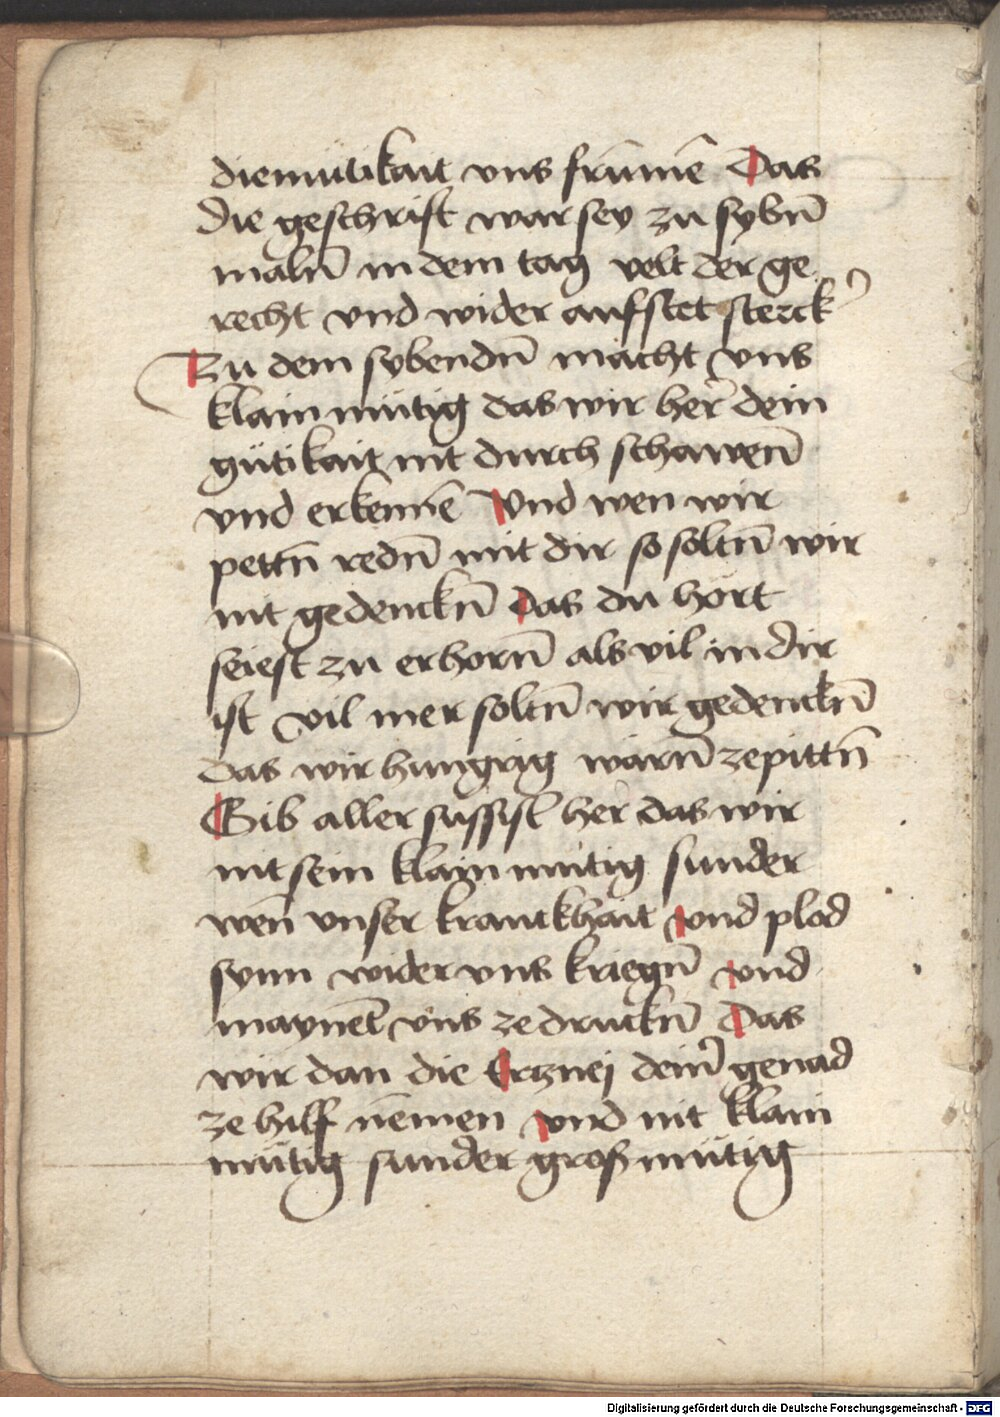 diemütikait vns frūmē Das
die geschrift war sey zu sybn̄
maln̄ in dem tag velt der ge
recht vnd wider aufstet sterck̉
Zu dem sybendn̄ macht vns
klainmütig das wir her̄ dein
gütikait nit durch schawen̄
vnd erkenn̄e Vnd wen wir
pettn̄ redn̄ mit dir so soltn̄ wir
nit gedenckn̄ Das du hört
seiest zu erhorn̄ als vil in dir
ist vil mer soltn̄ wir gedenckn̄
das wir hungrig wärn̄ ze pittn̄
Gib aller sussist her̄ das wir
nit sein klainmütig sunder
wen̄ vnser kranckhait vnd plöd
synn wider vns kriegn̄ vnd
maynet vns ze druckn̄ Das
wir dan die Ertznej dein̉ genad
ze hilf nemen vnd nit klain
mütig sunder grosmütig
Digitalisierung gefördert durch die Deutsche Forschungsgemeinschaft - DFG